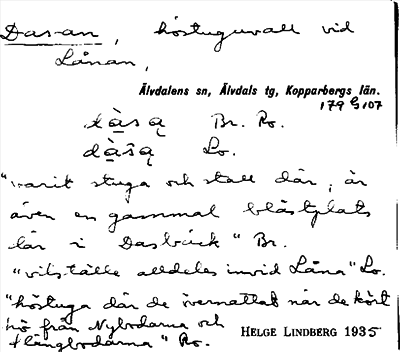 Das-an, höstuguvall vid
Lånan,
Älvdalens sn, Älvdals tg, Kopparbergs län.
179 G 107
dàsą Br. Ro.
dàsą Lo.
"varit stuga och stall där, är
även en gammal blästplats
där i Dasbäck" Br.
"vilställe alldeles invid Låna" Lo.
"höstuga där de övernattat när de kört
hö från Nybodarna och
Långbodarna" Ro.
HELGE LINDBERG 1935